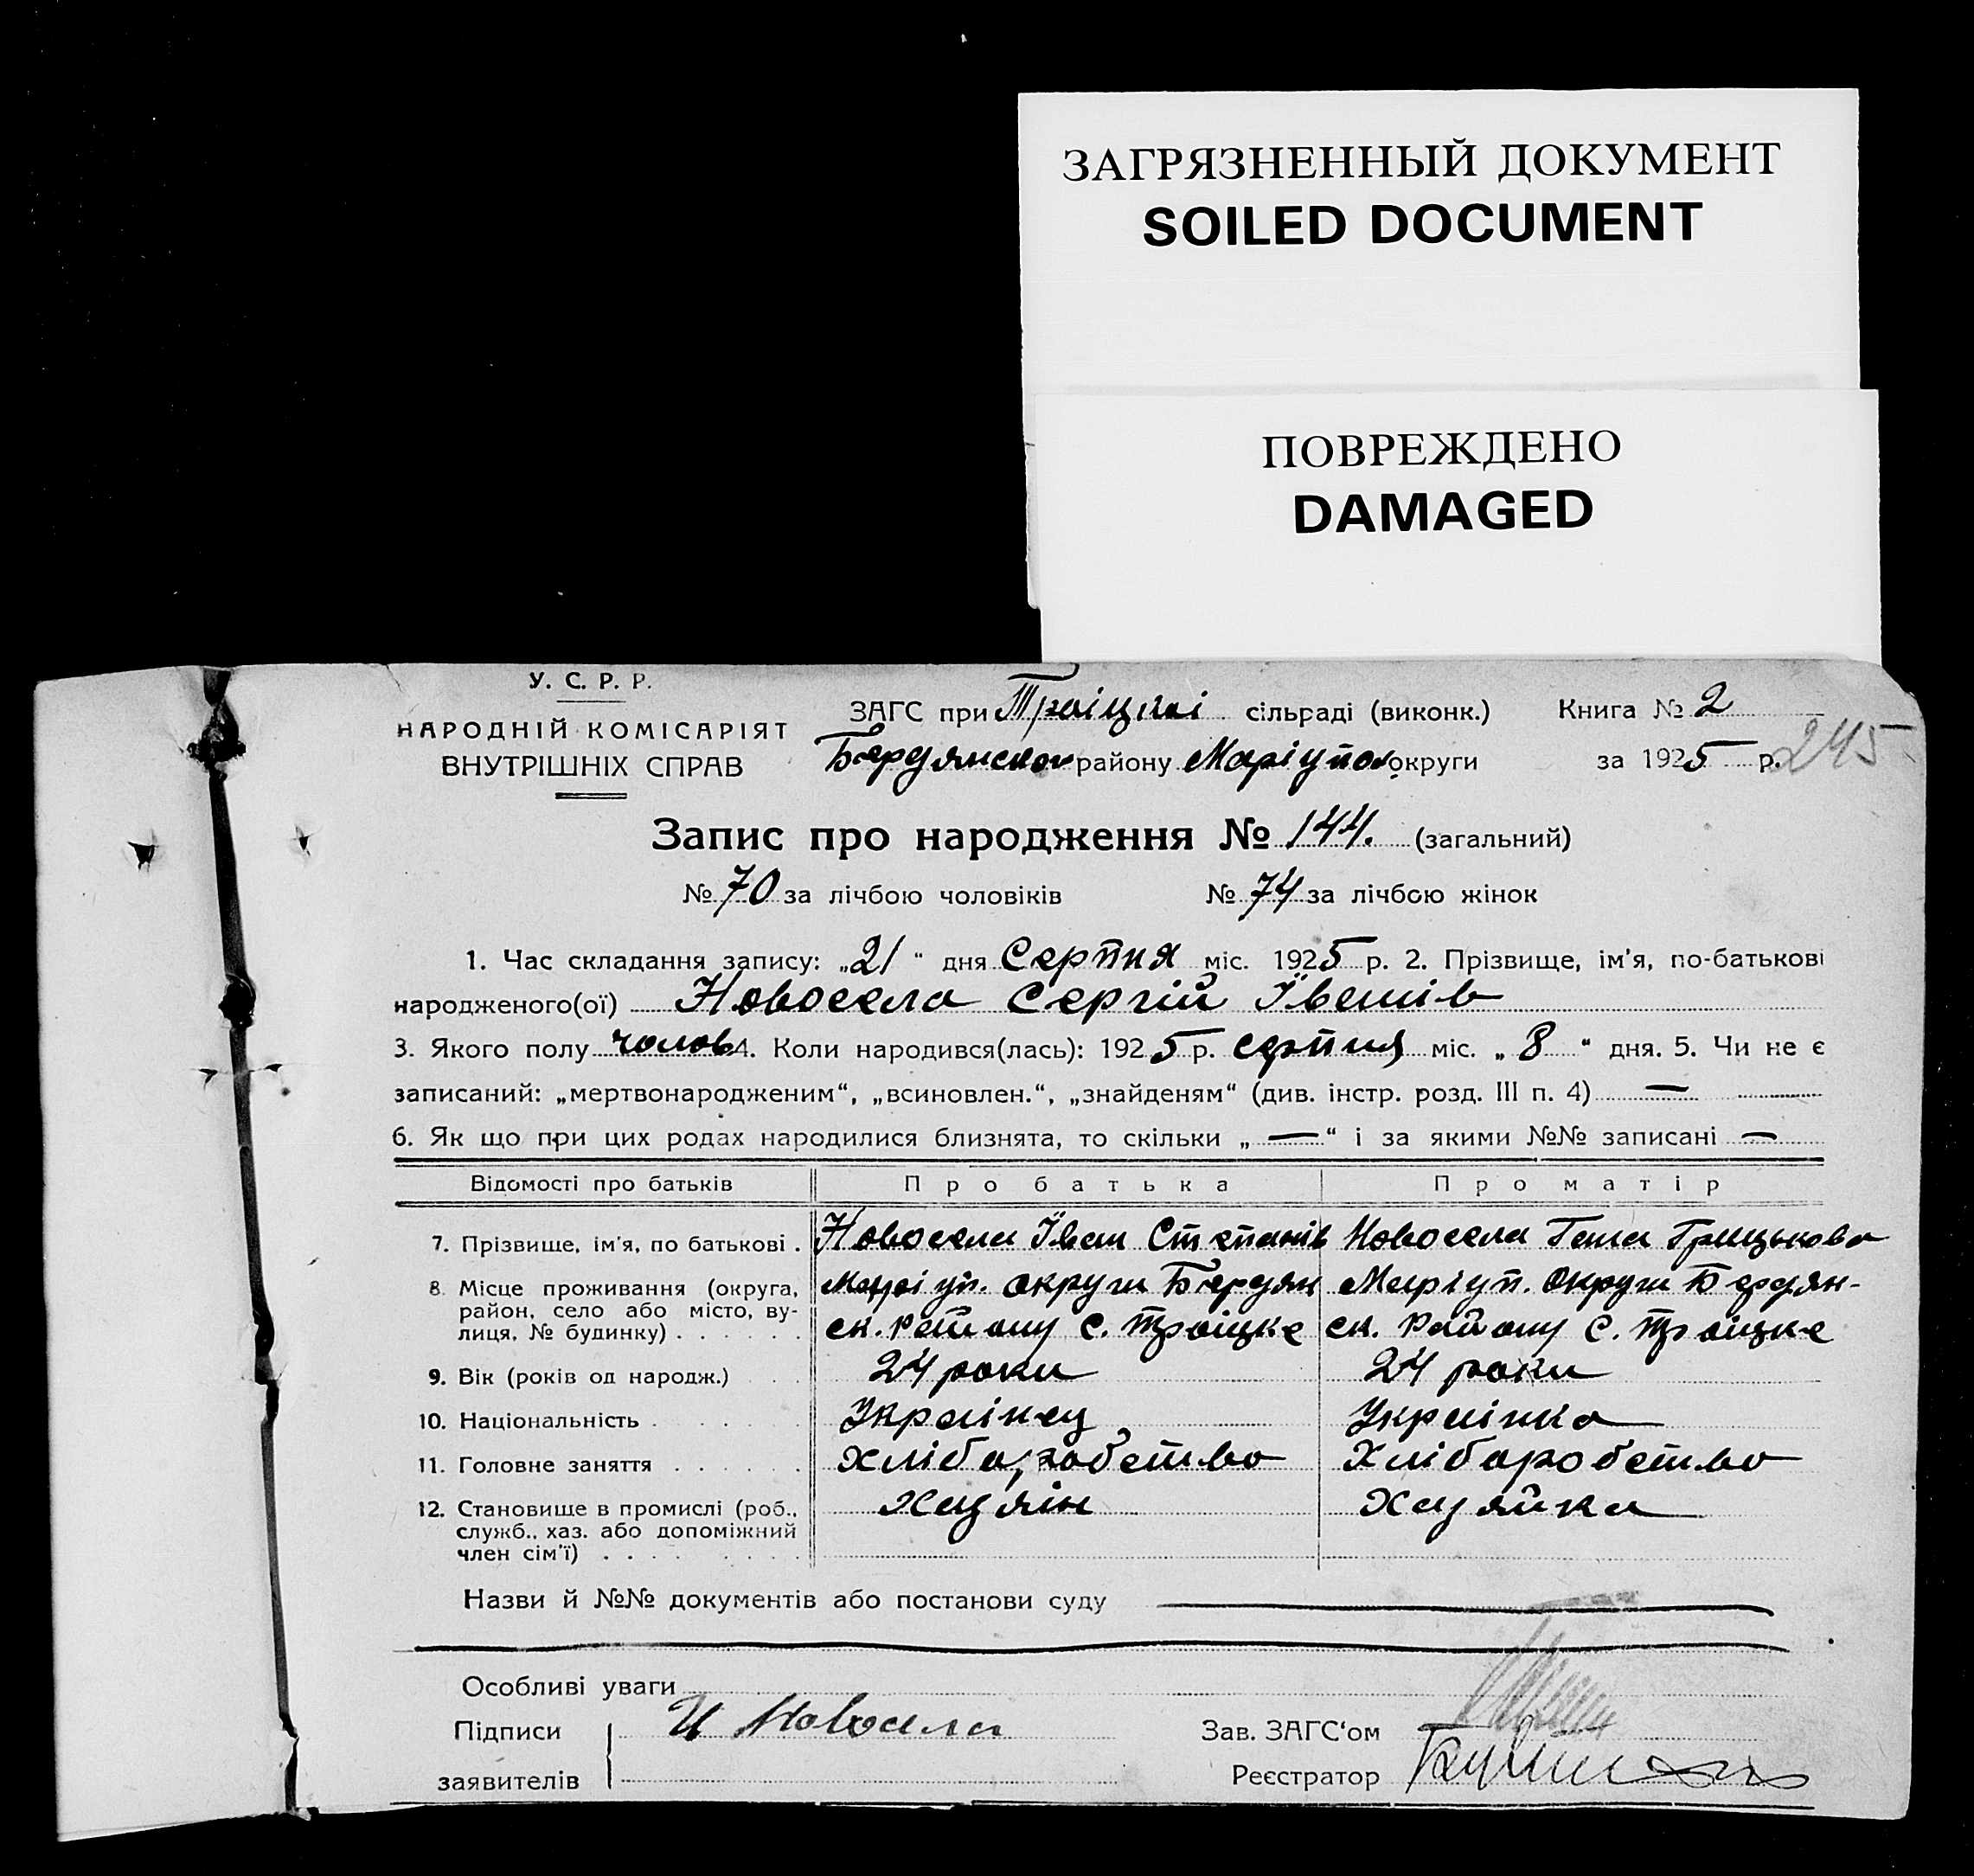 ЗАГРЯЗНЕННЫЙ ДОКУМЕНТ
SOILED DOCUMENT
ПОВРЕЖДЕНО
DAMAGED
У. С. Р. Р.
НАРОДНІЙ КОМІСАРІЯТ
ВНУТРІШНІХ СПРАВ
ЗАГС при Троіцькі сільраді (виконк.) Книга № 2
Бердянсько району Маріупол. округи за 1925 р. 245
Запис про народження № 144. (загальний)
№ 70 за лічбою чоловіків № 74 за лічбою жінок
1. Час складання запису: „21“ дня Серпня міс. 1925 р. 2. Прізвище, ім'я, по-батькові
народженого(ої) Новосела Сергій Іванів
3. Якого полу чолов 4. Коли народився(лась): 1925 р. серпня міс. „8“ дня. 5. Чи не є
записаний: „мертвонародженим“, „всиновлен.“, „знайденям“ (див. інстр. розд. III п. 4) —
6. Як що при цих родах народилися близнята, то скільки „—“ і за якими №№ записані —
Відомості про батьків Про батька Про матір
7. Прізвище, ім'я, по батькові . Новосела Іван Степанів Новосела Ганна Грицькова
8. Місце проживання (округа, район, село або місто, вулиця, № будинку) . . . . . . Маріуп. округи Бердян Маріуп. округи Бердян-
ск. району С. Троіцке ск. району С. Троіцке
9. Вік (років од народж.) . . . 24 роки 24 роки
10. Національність . . . . . Украінец Украінка
11. Головне заняття . . . . . . Хліборобство Хліборобство
12. Становище в промислі (роб., служб., хаз. або допоміжний член сім'ї) . . . . . . . . Хазяін Хазяйка
Назви й №№ документів або постанови суду
Особливі уваги
Підписи заявителів И Новосела
Зав. ЗАГС‘ом
Реєстратор